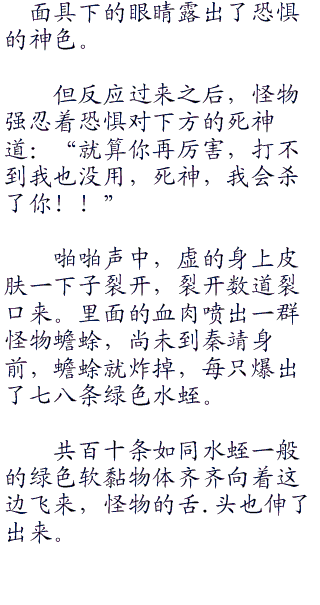 面具下的眼睛露出了恐惧
的神色。
但反应过来之后，怪物
强忍着恐惧对下方的死神
道：“就算你再厉害，打不
到我也没用，死神，我会杀
了你！！”
啪啪声中，虚的身上皮
肤一下子裂开，裂开数道裂
口来。里面的血肉喷出一群
怪物蟾蜍，尚未到秦靖身
前，蟾蜍就炸掉，每只爆出
了七八条绿色水蛭。
共百十条如同水蛭一般
的绿色软黏物体齐齐向着这
边飞来，怪物的舌.头也伸了
出来。